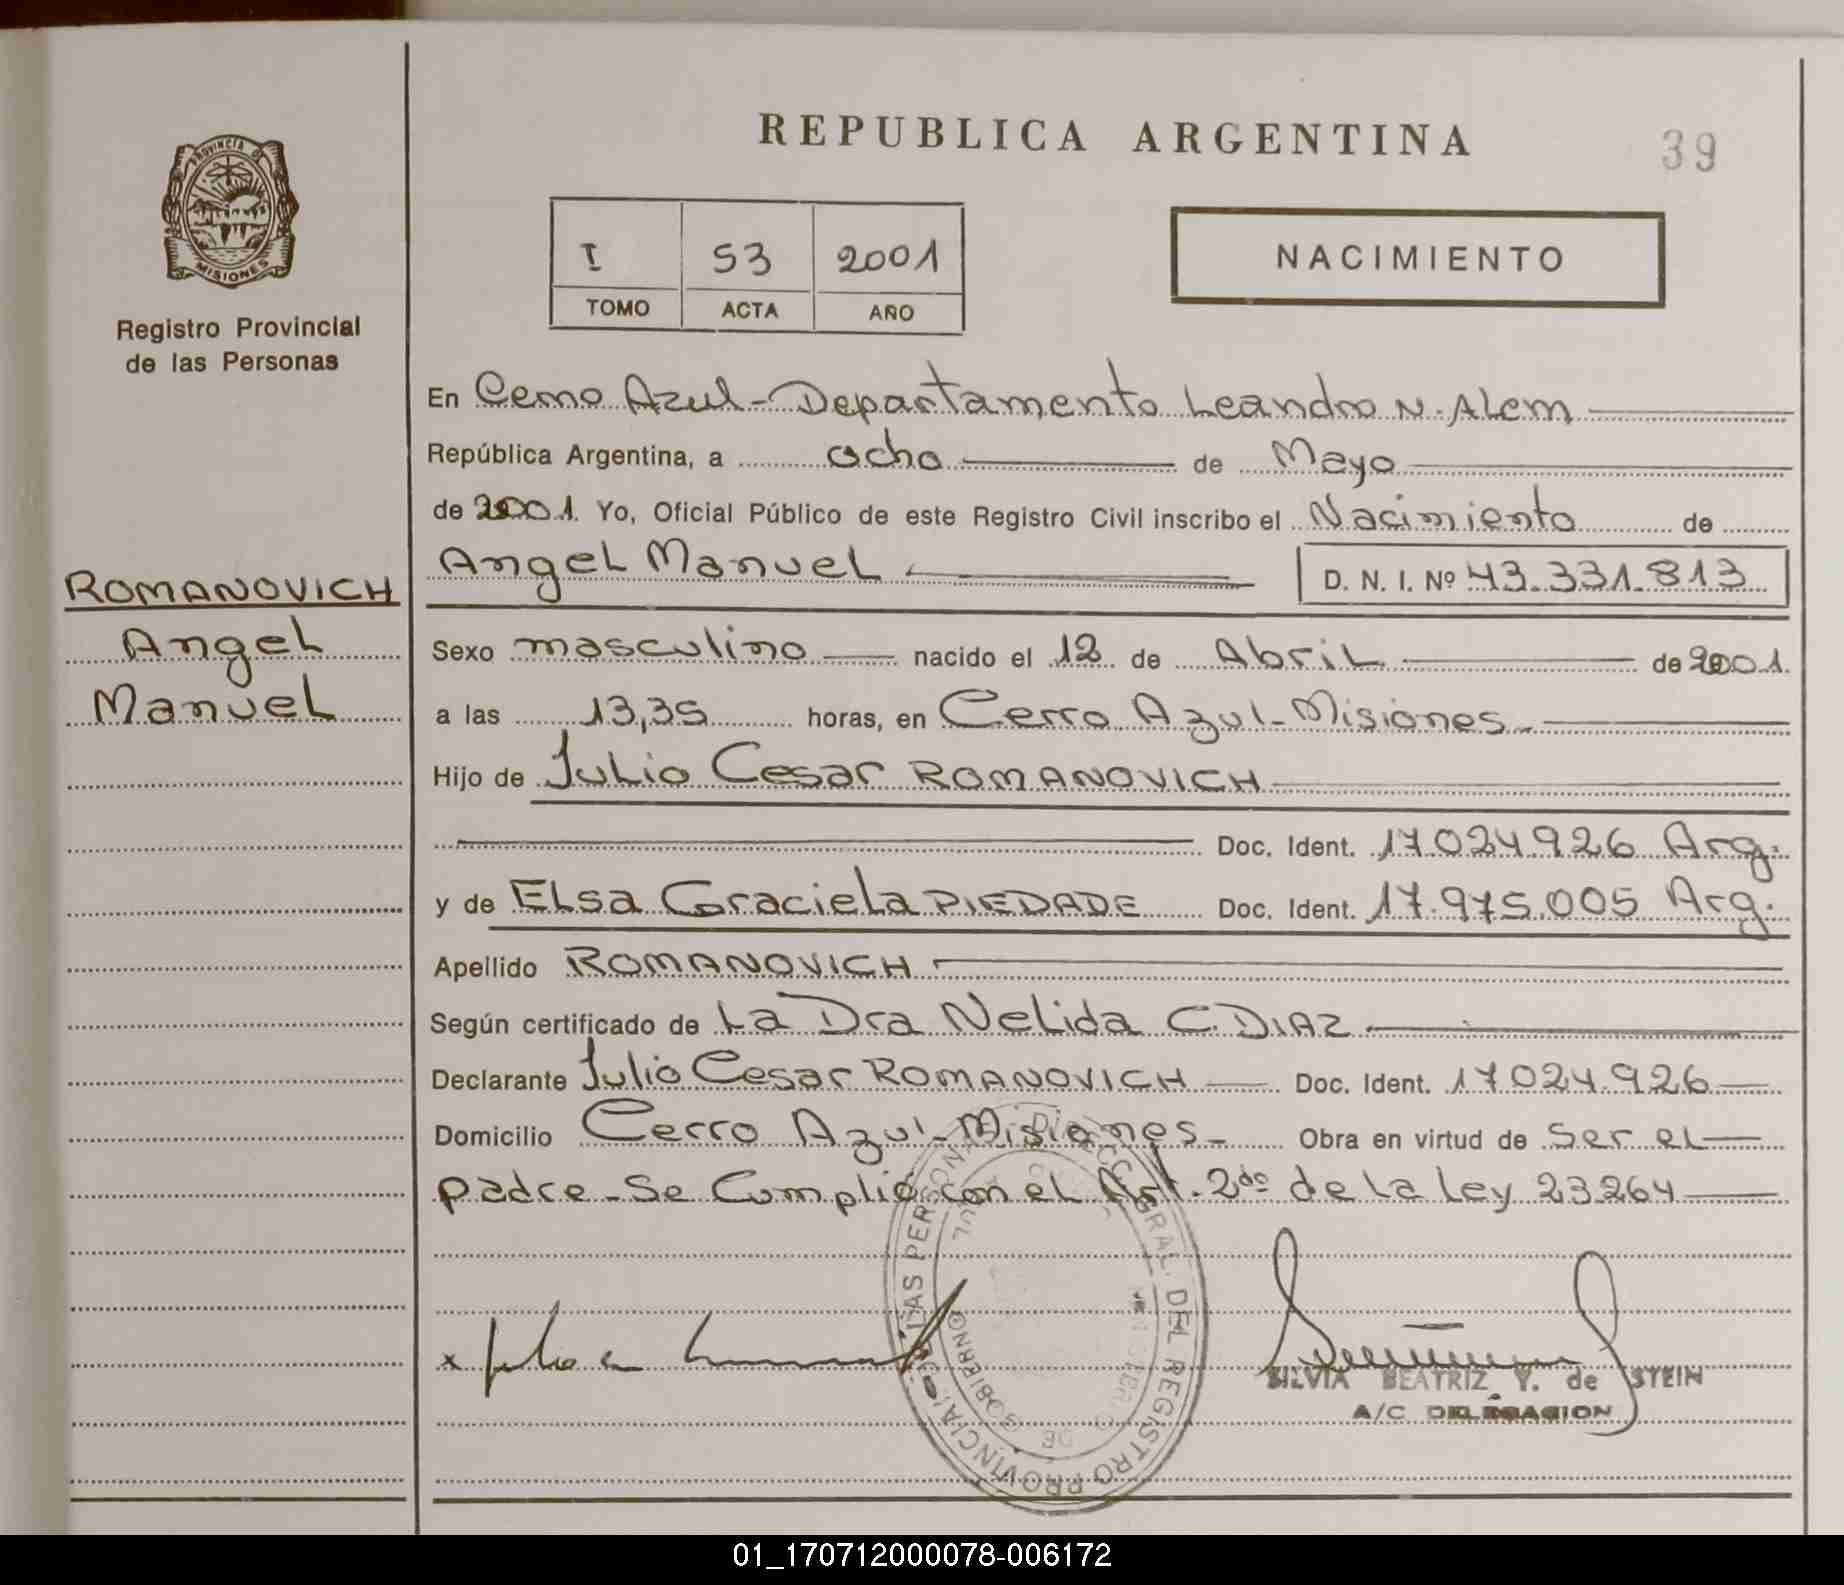 REPUBLICA ARGENTINA
39
PROVINCIA DE
MISIONES
Registro Provincial
de las Personas
I 53 2001
TOMO ACTA AÑO
NACIMIENTO
En Cerro Azul - Departamento Leandro N. Alem
República Argentina, a ocho de Mayo
de 2001. Yo, Oficial Público de este Registro Civil inscribo el Nacimiento de
Angel Manuel D. N. I. Nº 43.331.813
ROMANOVICH
Angel
Manuel
Sexo masculino nacido el 12 de Abril de 2001.
a las 13,35 horas, en Cerro Azul - Misiones.
Hijo de Julio Cesar ROMANOVICH
Doc. Ident. 17.024.926 Arg.
y de Elsa Graciela PIEDADE Doc. Ident. 17.975.005 Arg.
Apellido ROMANOVICH
Según certificado de La Dra Nelida C. DIAZ
Declarante Julio Cesar ROMANOVICH Doc. Ident. 17.024.926
Domicilio Cerro Azul - Misiones - Obra en virtud de ser el
padre - Se Cumplió con el Art. 2do de la Ley 23.264
SILVIA BEATRIZ Y. de STEIN
A/C DELEGACION
GRAL. DEL REGISTRO PROVINCIAL DE LAS PERSONAS
MINISTERIO DE GOBIERNO
01_170712000078-006172